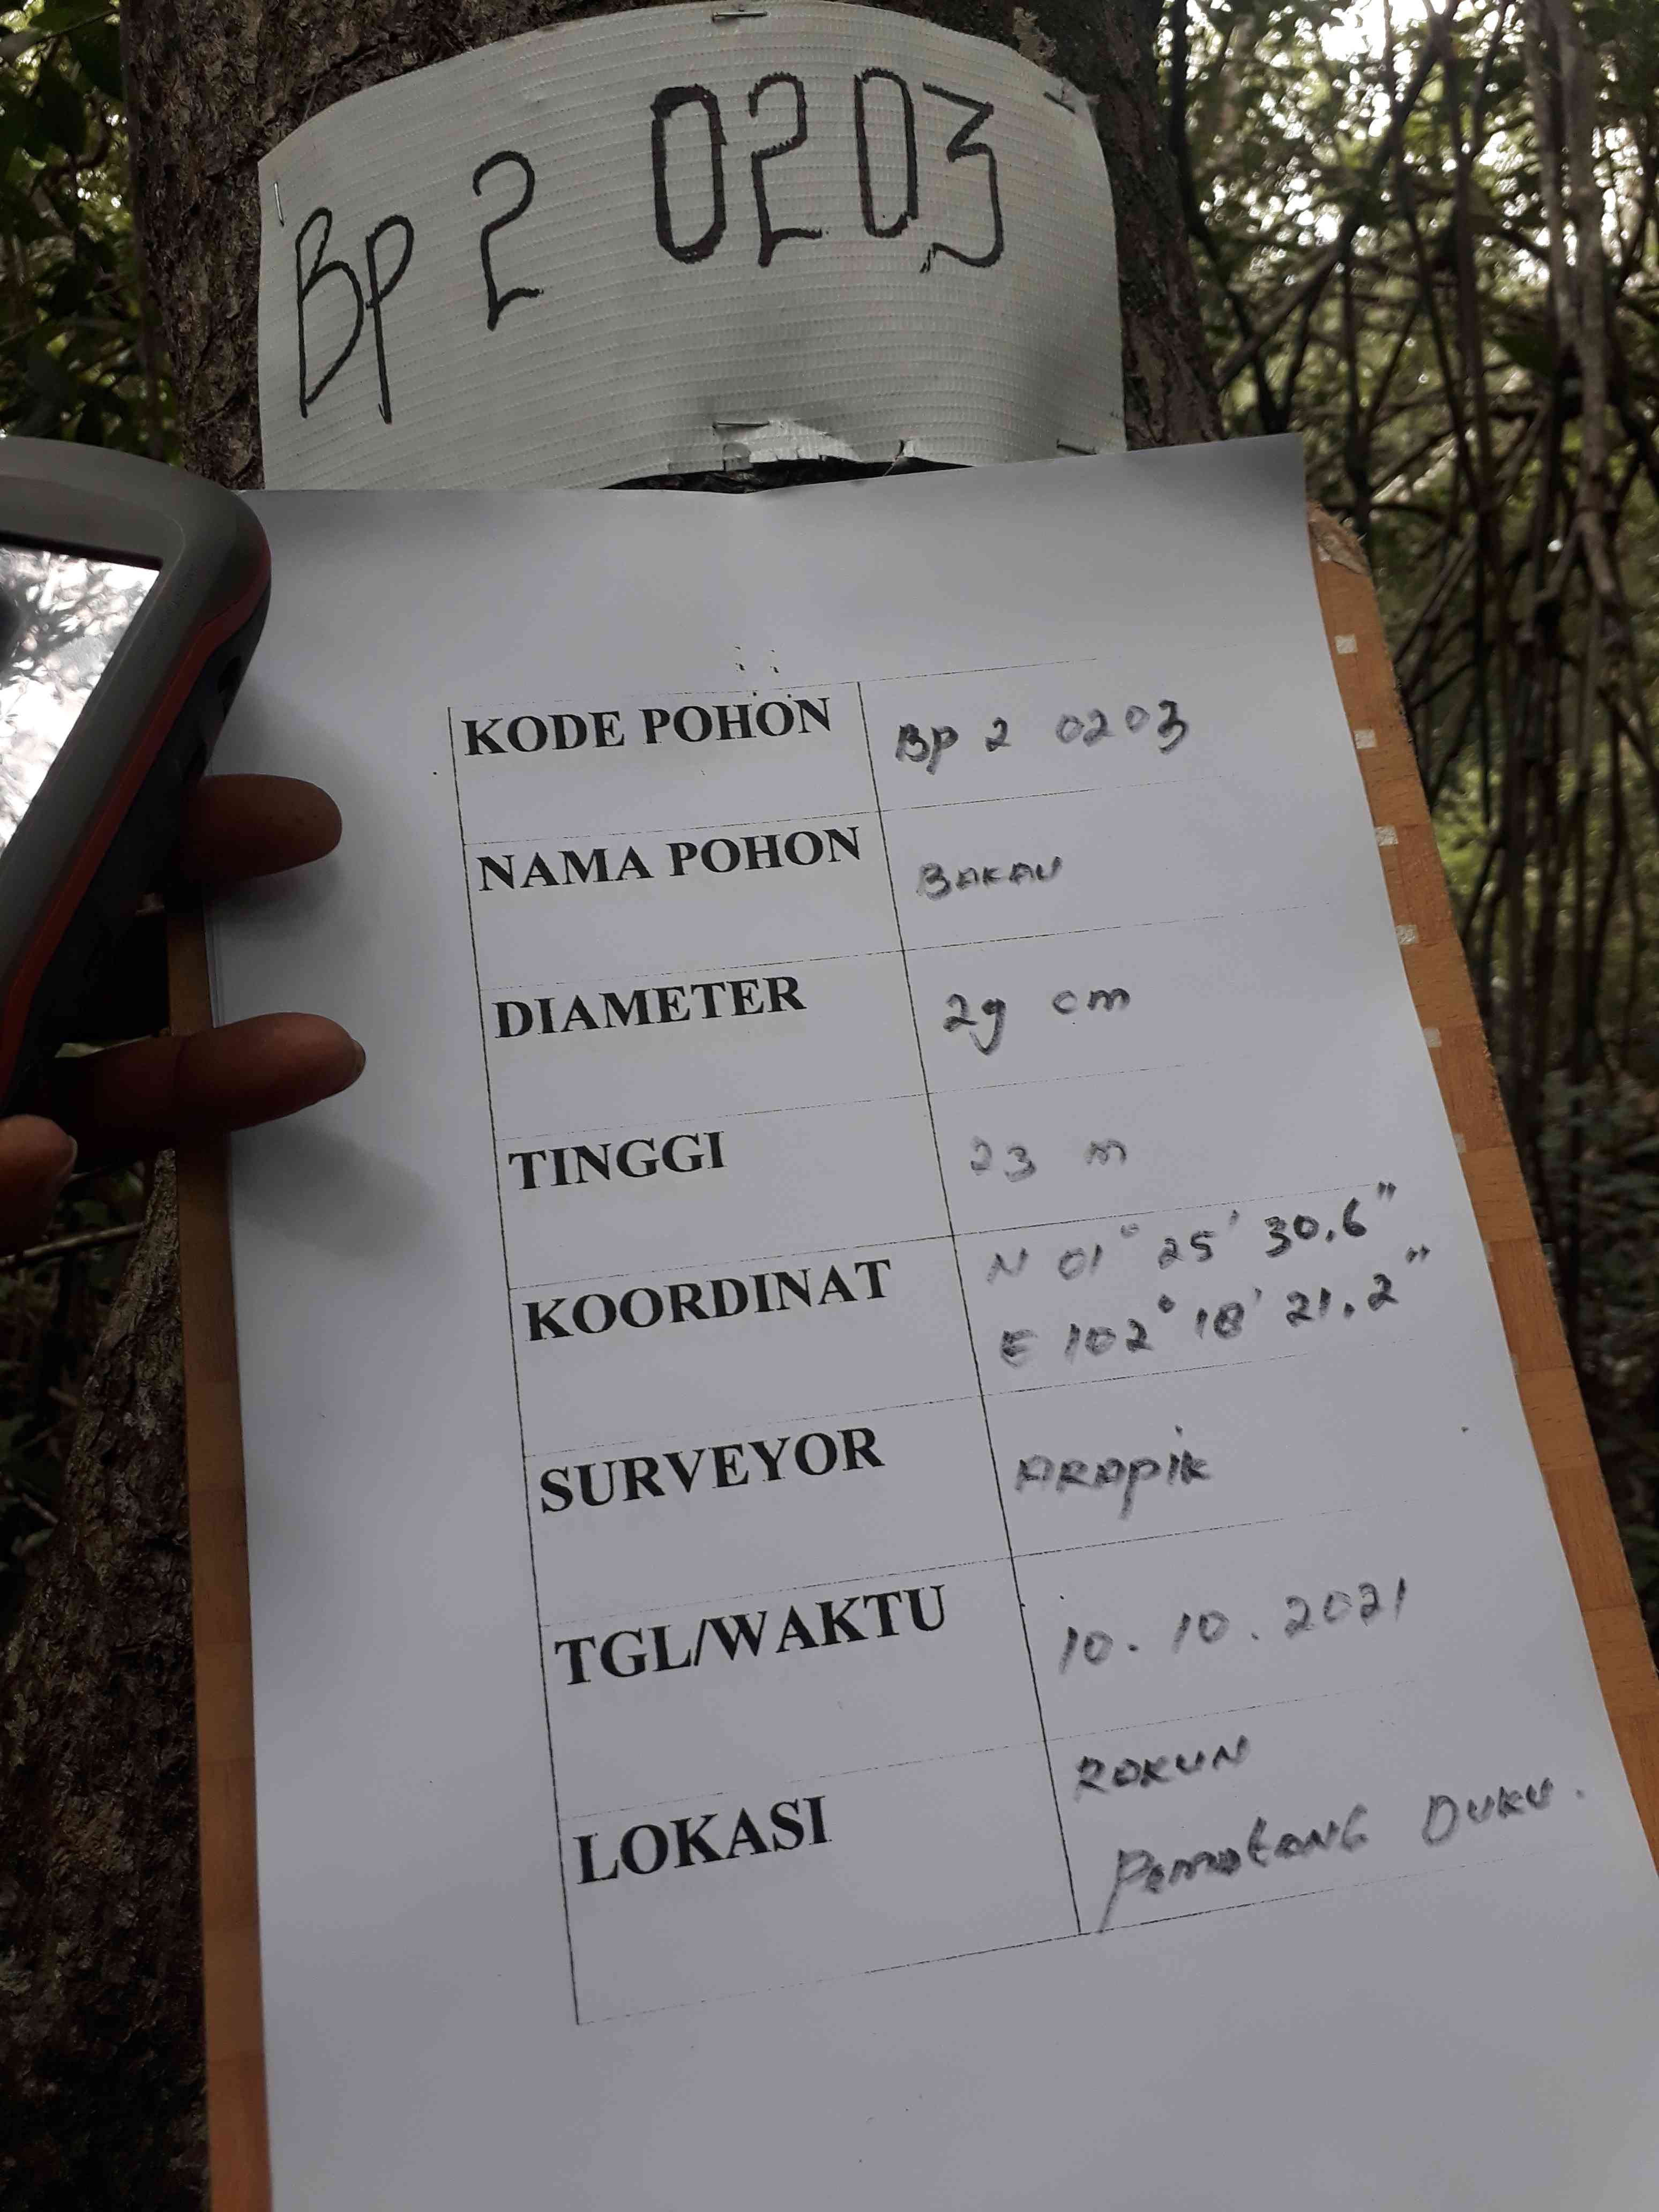 Bp 2 0203
KODE POHON Bp 2 0203
NAMA POHON BAKAU
DIAMETER 29 cm
TINGGI 23 m
KOORDINAT N 01° 25' 30.6"
E 102° 18' 21.2"
SURVEYOR ARAPIK
TGL/WAKTU 10.10.2021
LOKASI ROKUN
PEMATANG DUKU.